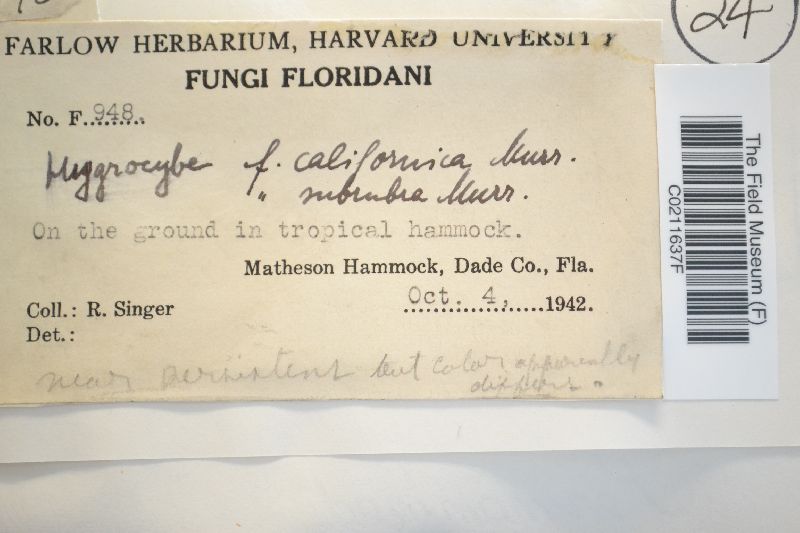 24
FARLOW HERBARIUM, HARVARD UNIVERSITY
FUNGI FLORIDANI
No. F. 948.
Hygrocybe f. californica Murr.
" Murr.
On the ground in tropical hammock.
Matheson Hammock, Dade Co., Fla.
Coll.: R. Singer Oct. 4, 1942.
Det.:
near persistent but color apparently
differs.
The Field Museum (F)
C0211637F